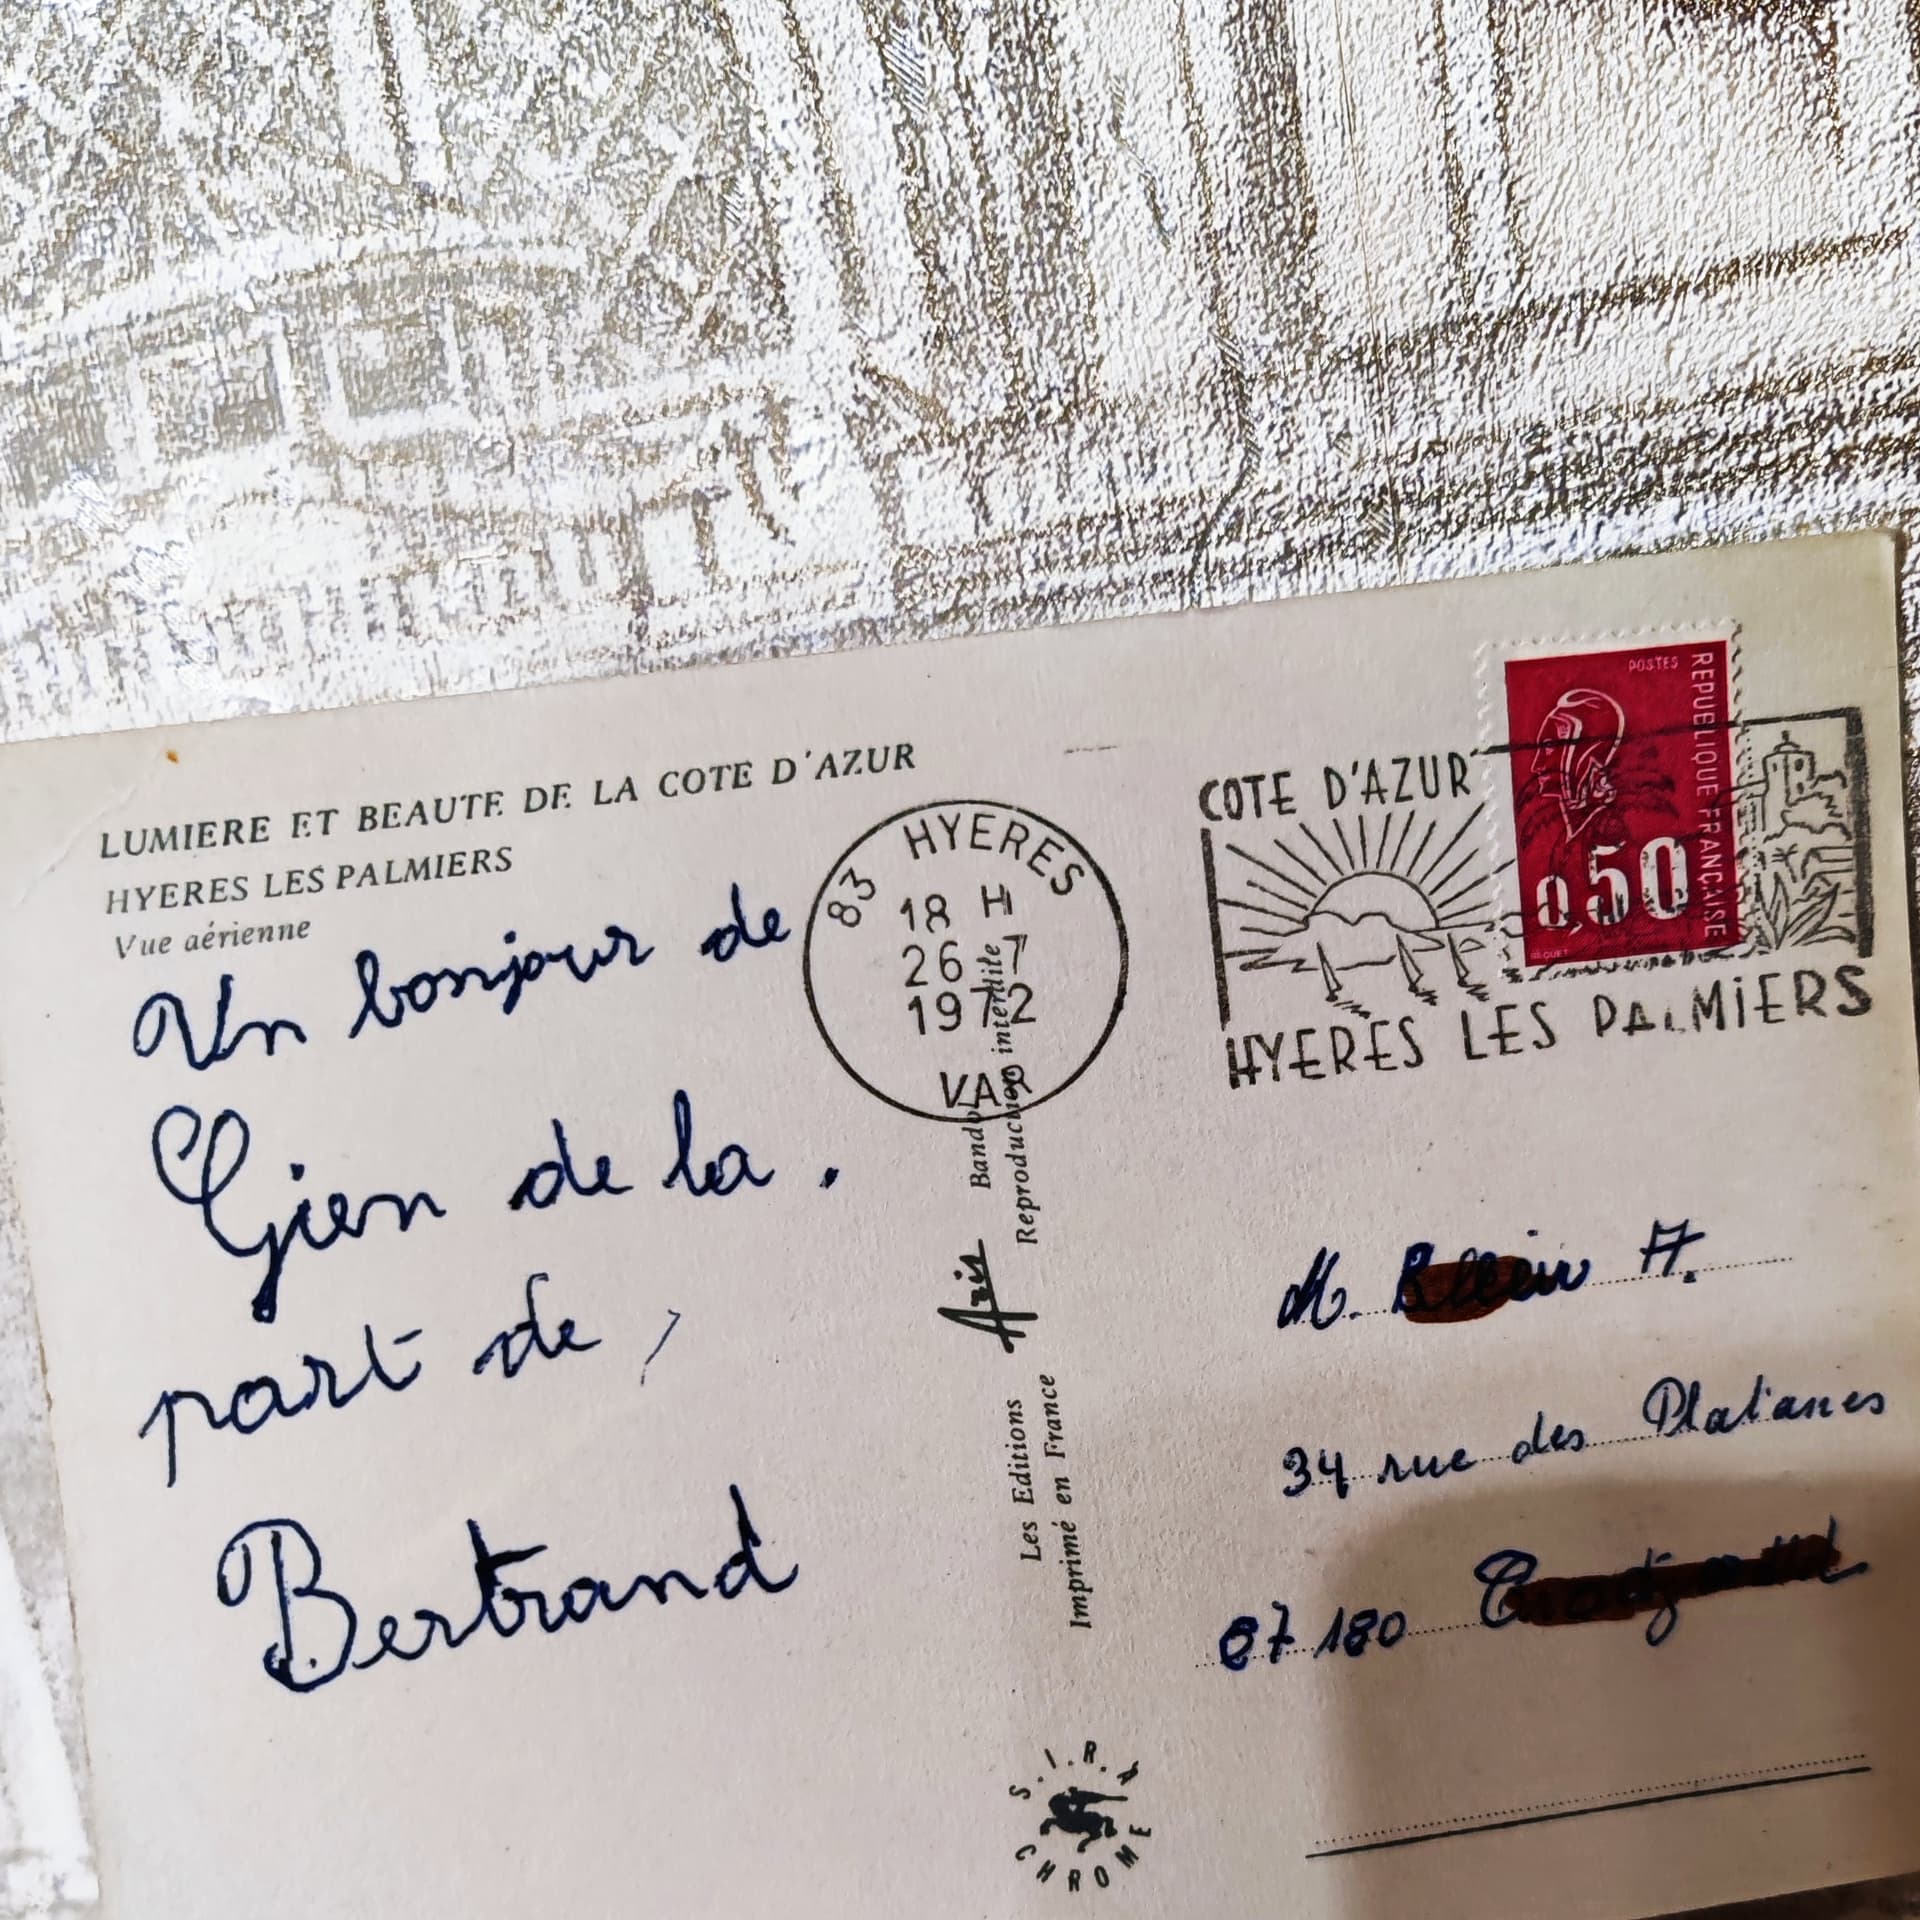 LUMIERE ET BEAUTE DE LA COTE D'AZUR
HYERES LES PALMIERS
Vue aérienne
Un bonjour de
Gien de la.
part de,
Bertrand
83 HYERES
18 H
26 7
1972
VAR
COTE D'AZUR
HYERES LES PALMIERS
POSTES
REPUBLIQUE FRANÇAISE
0,50
BEQUET
Les Editions Aris Bandol
Imprimé en France Reproduction interdite
M. A.
34 rue des Platanes
67180
S.I.R.A
CHROME